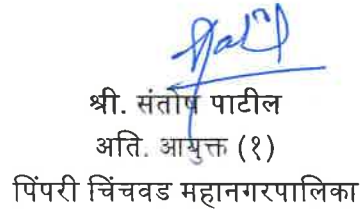 श्री. संतोष पाटील
अति. आयुक्त (१)
पिंपरी चिंचवड महानगरपालिका